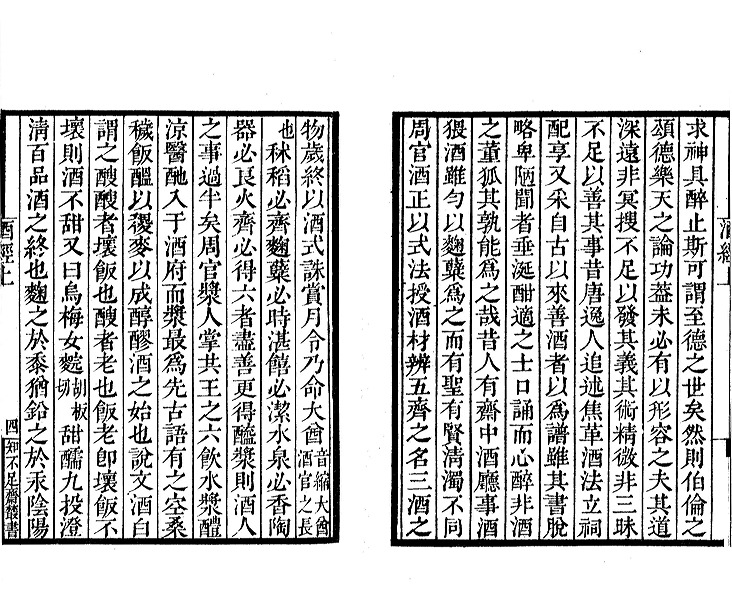 求神具醉止斯可謂至德之世矣然則伯倫之
頌德樂天之論功蓋未必有以形容之夫其道
深遠非冥搜不足以發其義其術精微非三昧
不足以善其事昔唐逸人追述焦革酒法立祠
配享又采自古以來善酒者以爲譜雖其書脫
略卑陋聞者垂涎酣適之士口誦而心醉非酒
之董狐其孰能爲之哉昔人有齋中酒廳事酒
猥酒雖勻以麴糵爲之而有聖有賢淸濁不同
周官酒正以式法授酒材辨五齊之名三酒之
酒經上
物歲終以酒式誅賞月令乃命大酋音縮大酋酒官之長
也秫稻必齊麴糵必時湛饎必潔水泉必香陶
器必良火齊必得六者盡善更得醯漿則酒人
之事過半矣周官漿人掌共王之六飲水漿醴
涼醫酏入于酒府而漿最爲先古語有之空桑
穢飯醞以稷麥以成醇醪酒之始也說文酒白
謂之醙醙者壞飯也醙者老也飯老卽壞飯不
壞則酒不甜又曰烏梅女䴷胡板切甜醹九投澄
淸百品酒之終也麴之於黍猶鉛之於汞陰陽
酒經上
四
知不足齋叢書